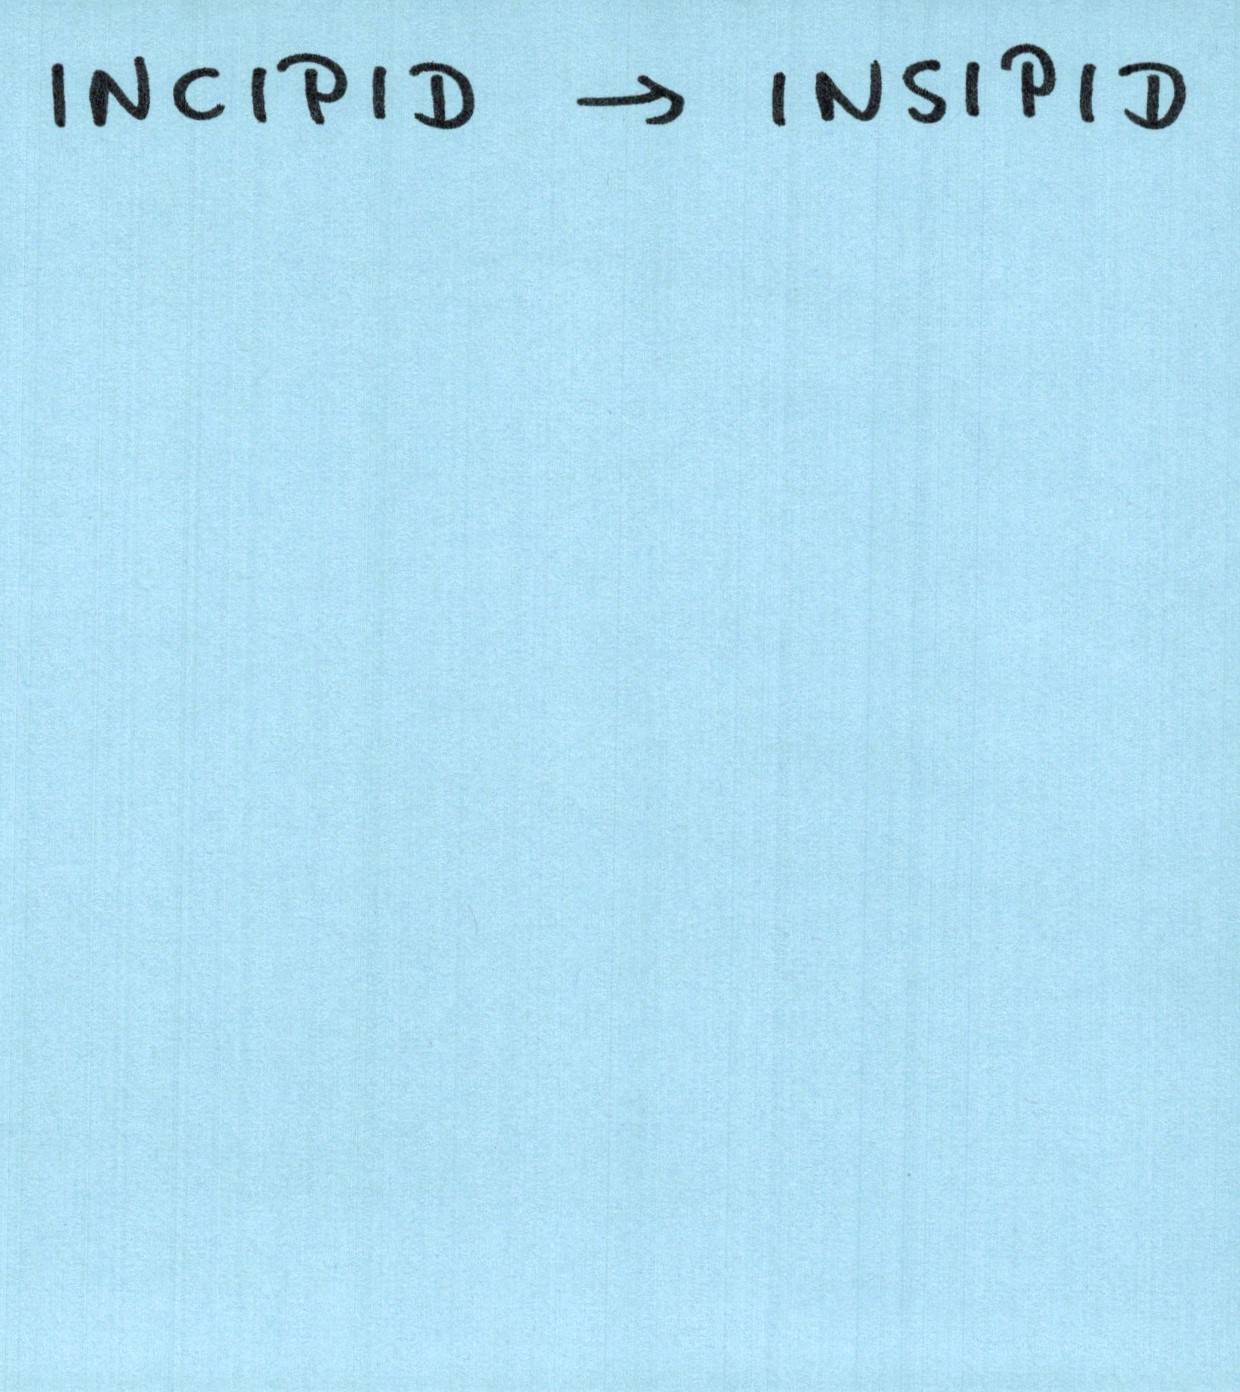 INCIPID → INSIPID